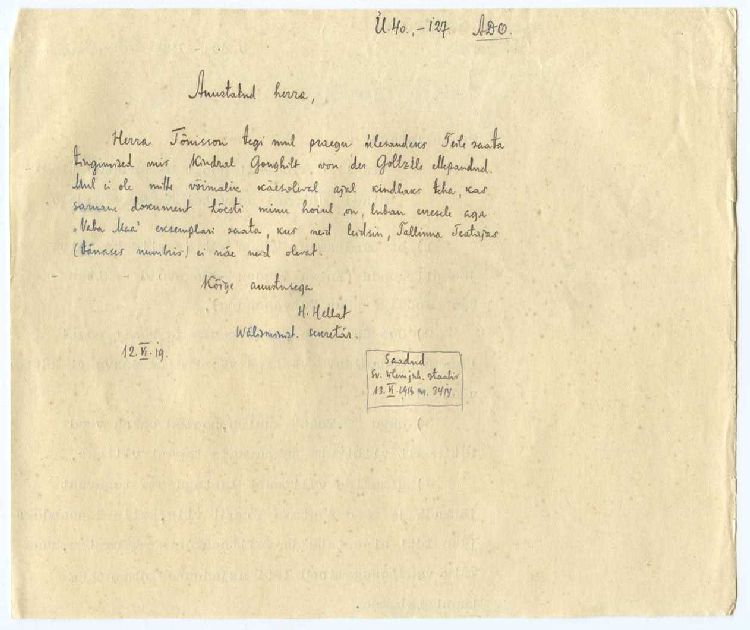 Ü. 40.,-127. ADO.
Austatud herra,
Herra Tõnisson tegi mul praegu ülesandeks Teile saata
tingimised mis Kindral Gough'ilt von der Goltz'ile ettepandud.
Mul ei ole mitte võimalik käesoleval ajal kindlaks teha, kas
sarnane dokument tõesti minu hoiul on, luban enesele aga
"Vaba Maa" eksemplari saata, kus neid leidsin, Tallinna Teatajas
(tänases numbris) ei näe neid olevat.
Kõige austusega
H. Hellat
Wälisminist. sekretär.
12.VI.19.
Saadud
Sv. Ülemjuh. staabis
13.VI.1919 nr.